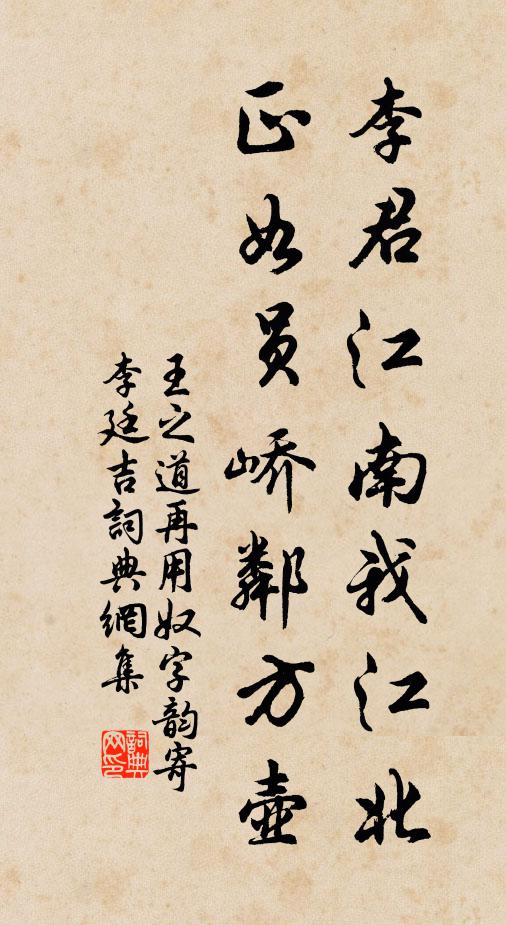 李君江南我江北
正如员峤鄰方壺
王之道再用奴字韵寄
李廷吉詞典網集
詞典网印